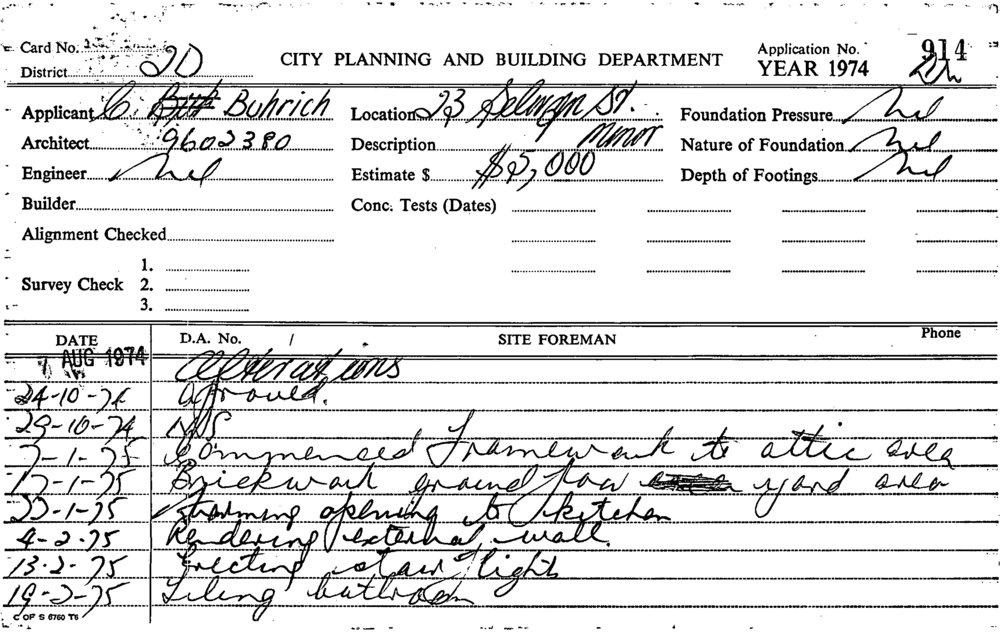 Card No.
District 2D
CITY PLANNING AND BUILDING DEPARTMENT
Application No. 914
YEAR 1974
Applicant C. Buhrich
Location 23 St.
Foundation Pressure Nil
Architect 9602380
Description Minor
Nature of Foundation Nil
Engineer Nil
Estimate $ $5,000
Depth of Footings Nil
Builder
Conc. Tests (Dates)
Alignment Checked
Survey Check 1.
2.
3.
DATE D.A. No. / SITE FOREMAN Phone
7 AUG 1974 Alterations
24-10-74 Approved.
29-10-74 N/S
7-1-75 Commenced Framework to attic area
17-1-75 Brickwork ground floor yard area
23-1-75 Forming opening to kitchen
4-2-75 Rendering external wall.
13-2-75 Erecting stair flight
19-2-75 Tiling bathroom
C OF S 6760 T6